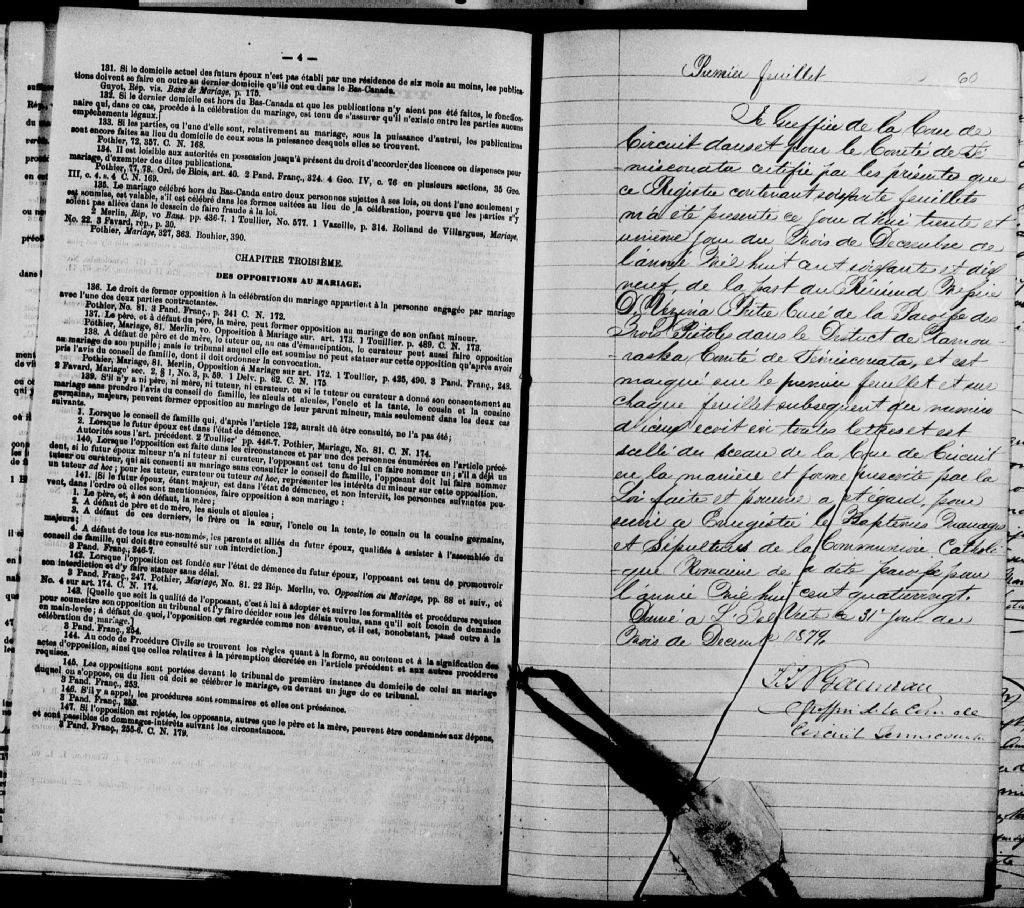 — 4 —
131. Si le domicile actuel des futurs époux n'est pas établi par une résidence de six mois au moins, les publica-
tions doivent se faire en outre au dernier domicile qu'ils ont eu dans le Bas-Canada.
Guyot, Rép. vis. Bans de Mariage, p. 175.
132. Si le dernier domicile est hors du Bas-Canada et que les publications n'y aient pas été faites, le fonction-
naire qui, dans ce cas, procède à la célébration du mariage, est tenu de s'assurer qu'il n'existe entre les parties aucuns
empêchements légaux.]
133. Si les parties, ou l'une d'elles sont, relativement au mariage, sous la puissance d'autrui, les publications
sont encore faites au lieu du domicile de ceux sous la puissance desquels elles se trouvent.
Pothier, 72, 357. C. N. 168.
134. Il est loisible aux autorités en possession jusqu'à présent du droit d'accorder des licences ou dispenses pour
mariage, d'exempter des dites publications.
Pothier, 77, 78. Ord. de Blois, art. 40. 2 Pand. Franç., 324. 4 Geo. IV, c. 76 en plusieurs sections, 35 Geo.
III, c. 4, s. 4 C. N. 169.
135. Le mariage célébré hors du Bas-Canda entre deux personnes sujettes à ses lois, ou dont l'une seulement y
est soumise, est valable, s'il est célébré dans les formes usitées au lieu de la célébration, pourvu que les parties n'y
soient pas allées dans le dessein de faire fraude à la loi.
2 Merlin, Rép, vo Bans. pp. 436-7. 1 Toullier, No. 577. 1 Vazeille, p. 314. Rolland de Villargues, Mariage,
No. 22. 3 Favard, rép., p. 30.
Pothier, Mariage, 327, 363. Bouhier, 390.
CHAPITRE TROISIÈME.
DES OPPOSITIONS AU MARIAGE.
136. Le droit de former opposition à la célébration du mariage appartient à la personne engagée par mariage
avec l'une des deux parties contractantes.
Pothier, No. 81. 3 Pand. Franç., p. 241 C. N. 172.
137. Le père, et à défaut du père, la mère, peut former opposition au mariage de son enfant mineur.
Pothier, Mariage, 81. Merlin, vo. Opposition à Mariage sur. art. 173. 1 Touillier, p. 489. C. N. 173.
138. A défaut de père et de mère, le tuteur ou, au cas d'émancipation, le curateur peut aussi faire opposition
au mariage de son pupille; mais le tribunal auquel elle est soumise ne peut statuer sur cette opposition qu'après avoir
pris l'avis du conseil de famille, dont il doit ordonner la convocation.
Pothier, Mariage, 81. Merlin, Opposition à Mariage sur art. 172. 1 Toullier, p. 425, 490. 3 Pand. Franç., 248.
2 Favard, Mariage sec. 2, § 1, No. 3, p. 59. 1 Delv. p. 62. C. N. 175
139. S'il n'y a ni père, ni mère, ni tuteur, ni curateur, ou si le tuteur ou curateur a donné son consentement au
mariage sans prendre l'avis du conseil de famille, les aïeuls et aïeules, l'oncle et la tante, le cousin et la cousine
germains, majeurs, peuvent former opposition au mariage de leur parent mineur, mais seulement dans les deux cas
suivants.
1. Lorsque le conseil de famille qui, d'après l'article 122, aurait dû être consulté, ne l'a pas été;
2. Lorsque le futur époux est dans l'état de démence.
Autorités sous l'art. précédent. 2 Toullier pp. 446-7. Pothier, Mariage, No. 81. C. N. 174.
140. Lorsque l'opposition est faite dans les circonstances et par une des personnes énumérées en l'article précé-
dent, si le futur époux mineur n'a ni tuteur ni curateur, l'opposant est tenu de lui en faire nommer un; s'il a déjà un
tuteur ou curateur, qui ait consenti au mariage sans consulter le conseil de famille, l'opposant doit lui faire nommer
un tuteur ad hoc; pour les tuteur, curateur ou tuteur ad hoc, représenter les intérêts du mineur sur cette opposition.
141. [Si le futur époux, étant majeur, est dans l'état de démence, et non interdit, les personnes suivantes peu-
vent, dans l'ordre où elles sont mentionnées, faire opposition à son mariage:
1. Le père, et, à son défaut, la mère;
2. A défaut de père et de mère, les aïeuls et aïeules;
3. A défaut de ces derniers, le frère ou la sœur, l'oncle ou la tante, le cousin ou la cousine germains,
majeurs;
4. A défaut de tous les sus-nommés, les parents et alliés du futur époux, qualifiés à assister à l'assemblée du
conseil de famille, qui doit être consulté sur son interdiction.]
3 Pand. Franç., 246-7.
142. Lorsque l'opposition est fondée sur l'état de démence du futur époux, l'opposant est tenu de promouvoir
son interdiction et d'y faire statuer sans délai.
3 Pand. Franç., 247. Pothier, Mariage, No. 81. 22 Rép. Merlin, vo. Opposition au Mariage, pp. 88 et suiv., et
No. 4 sur art. 174. C. N. 174.
143. [Quelle que soit la qualité de l'opposant, c'est à lui à adopter et suivre les formalités et procédures requises
pour soumettre son opposition au tribunal et l'y faire décider sous les délais voulus, sans qu'il soit besoin de demande
en main-levée; à défaut de quoi, l'opposition est regardée comme non avenue, et il est, nonobstant, passé outre à la
célébration du mariage.]
3 Pand. Franç., 254.
144. Au code de Procédure Civile se trouvent les règles quant à la forme, au contenu et à la signification des
actes d'opposition, ainsi que celles relatives à la péremption décrétée en l'article précédent et aux autres procédures
requises.
145. Les oppositions sont portées devant le tribunal de première instance du domicile de celui au mariage
duquel on s'oppose, ou du lieu où doit se célébrer le mariage, ou devant un juge de ce tribunal.
3 Pand. Franç., 253.
146. S'il y a appel, les procédures sont sommaires et elles ont préséance.
3 Pand. Franç., 258.
147. Si l'opposition est rejetée, les opposants, autres que le père et la mère, peuvent être condamnés aux dépens,
et sont passibles de dommages-intérêts suivant les circonstances.
3 Pand. Franç., 255-6. C. N. 179.
Premier feuillet 60
Le Greffier de la Cour de
Circuit dans et pour le Comté de Té
miscouata certifie par les présentes que
ce Registre contenant soixante feuillets
m'a été présenté ce jour d'hui trente et
unième jour du Mois de Décembre de
l'année Mil huit cent soixante et dix
neuf, de la part du Révérend Messire
D. Vézina Prêtre Curé de la Paroisse des
Trois Pistoles dans le District de Kamou-
raska Comté de Témiscouata, et est
marqué sur le premier feuillet et sur
chaque feuillet subséquent du numéro
d'iceux écrit en toutes lettres et est
scellé du sceau de la Cour de Circuit
en la manière et forme prescrite par la
Loi faite et pourvue à cet égard, pour
servir à Enregistrer les Baptêmes Mariages
et Sépultures de la Communion Catholi-
que Romaine de la dite paroisse pour
l'année Mil huit cent quatrevingt.
Donné à L'Isle Verte ce 31e jour du
Mois de Décembre 1879.
Greffier de la Cour de
Circuit Témiscouata